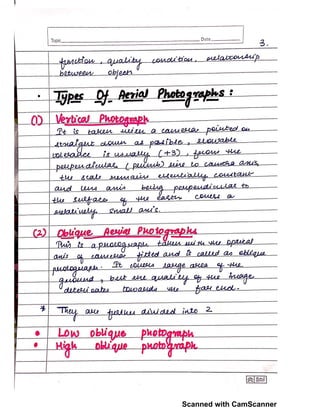 Topic Date
3.
function, quality condition, relationship
between objects
• Types Of Aerial Photographs :
(1) Vertical Photograph
It is taken with a camera pointed as
straight down as possible, allowable
tolerance is usually (+3) from the
perpendicular (plumb) line to camera axis,
the scale remain essentially constant
and lens axis being perpendicular to
the surface of the earth covers a
relatively small
(2) Oblique Aerial Photographs
This is a photograph taken with the optical
axis of camera tilted and is called as oblique
photograph. It covers large area of the
ground, but the quality of the image
towards the far end.
* They are further divided into 2
• Low oblique photograph
• High oblique photograph
Scanned with CamScanner